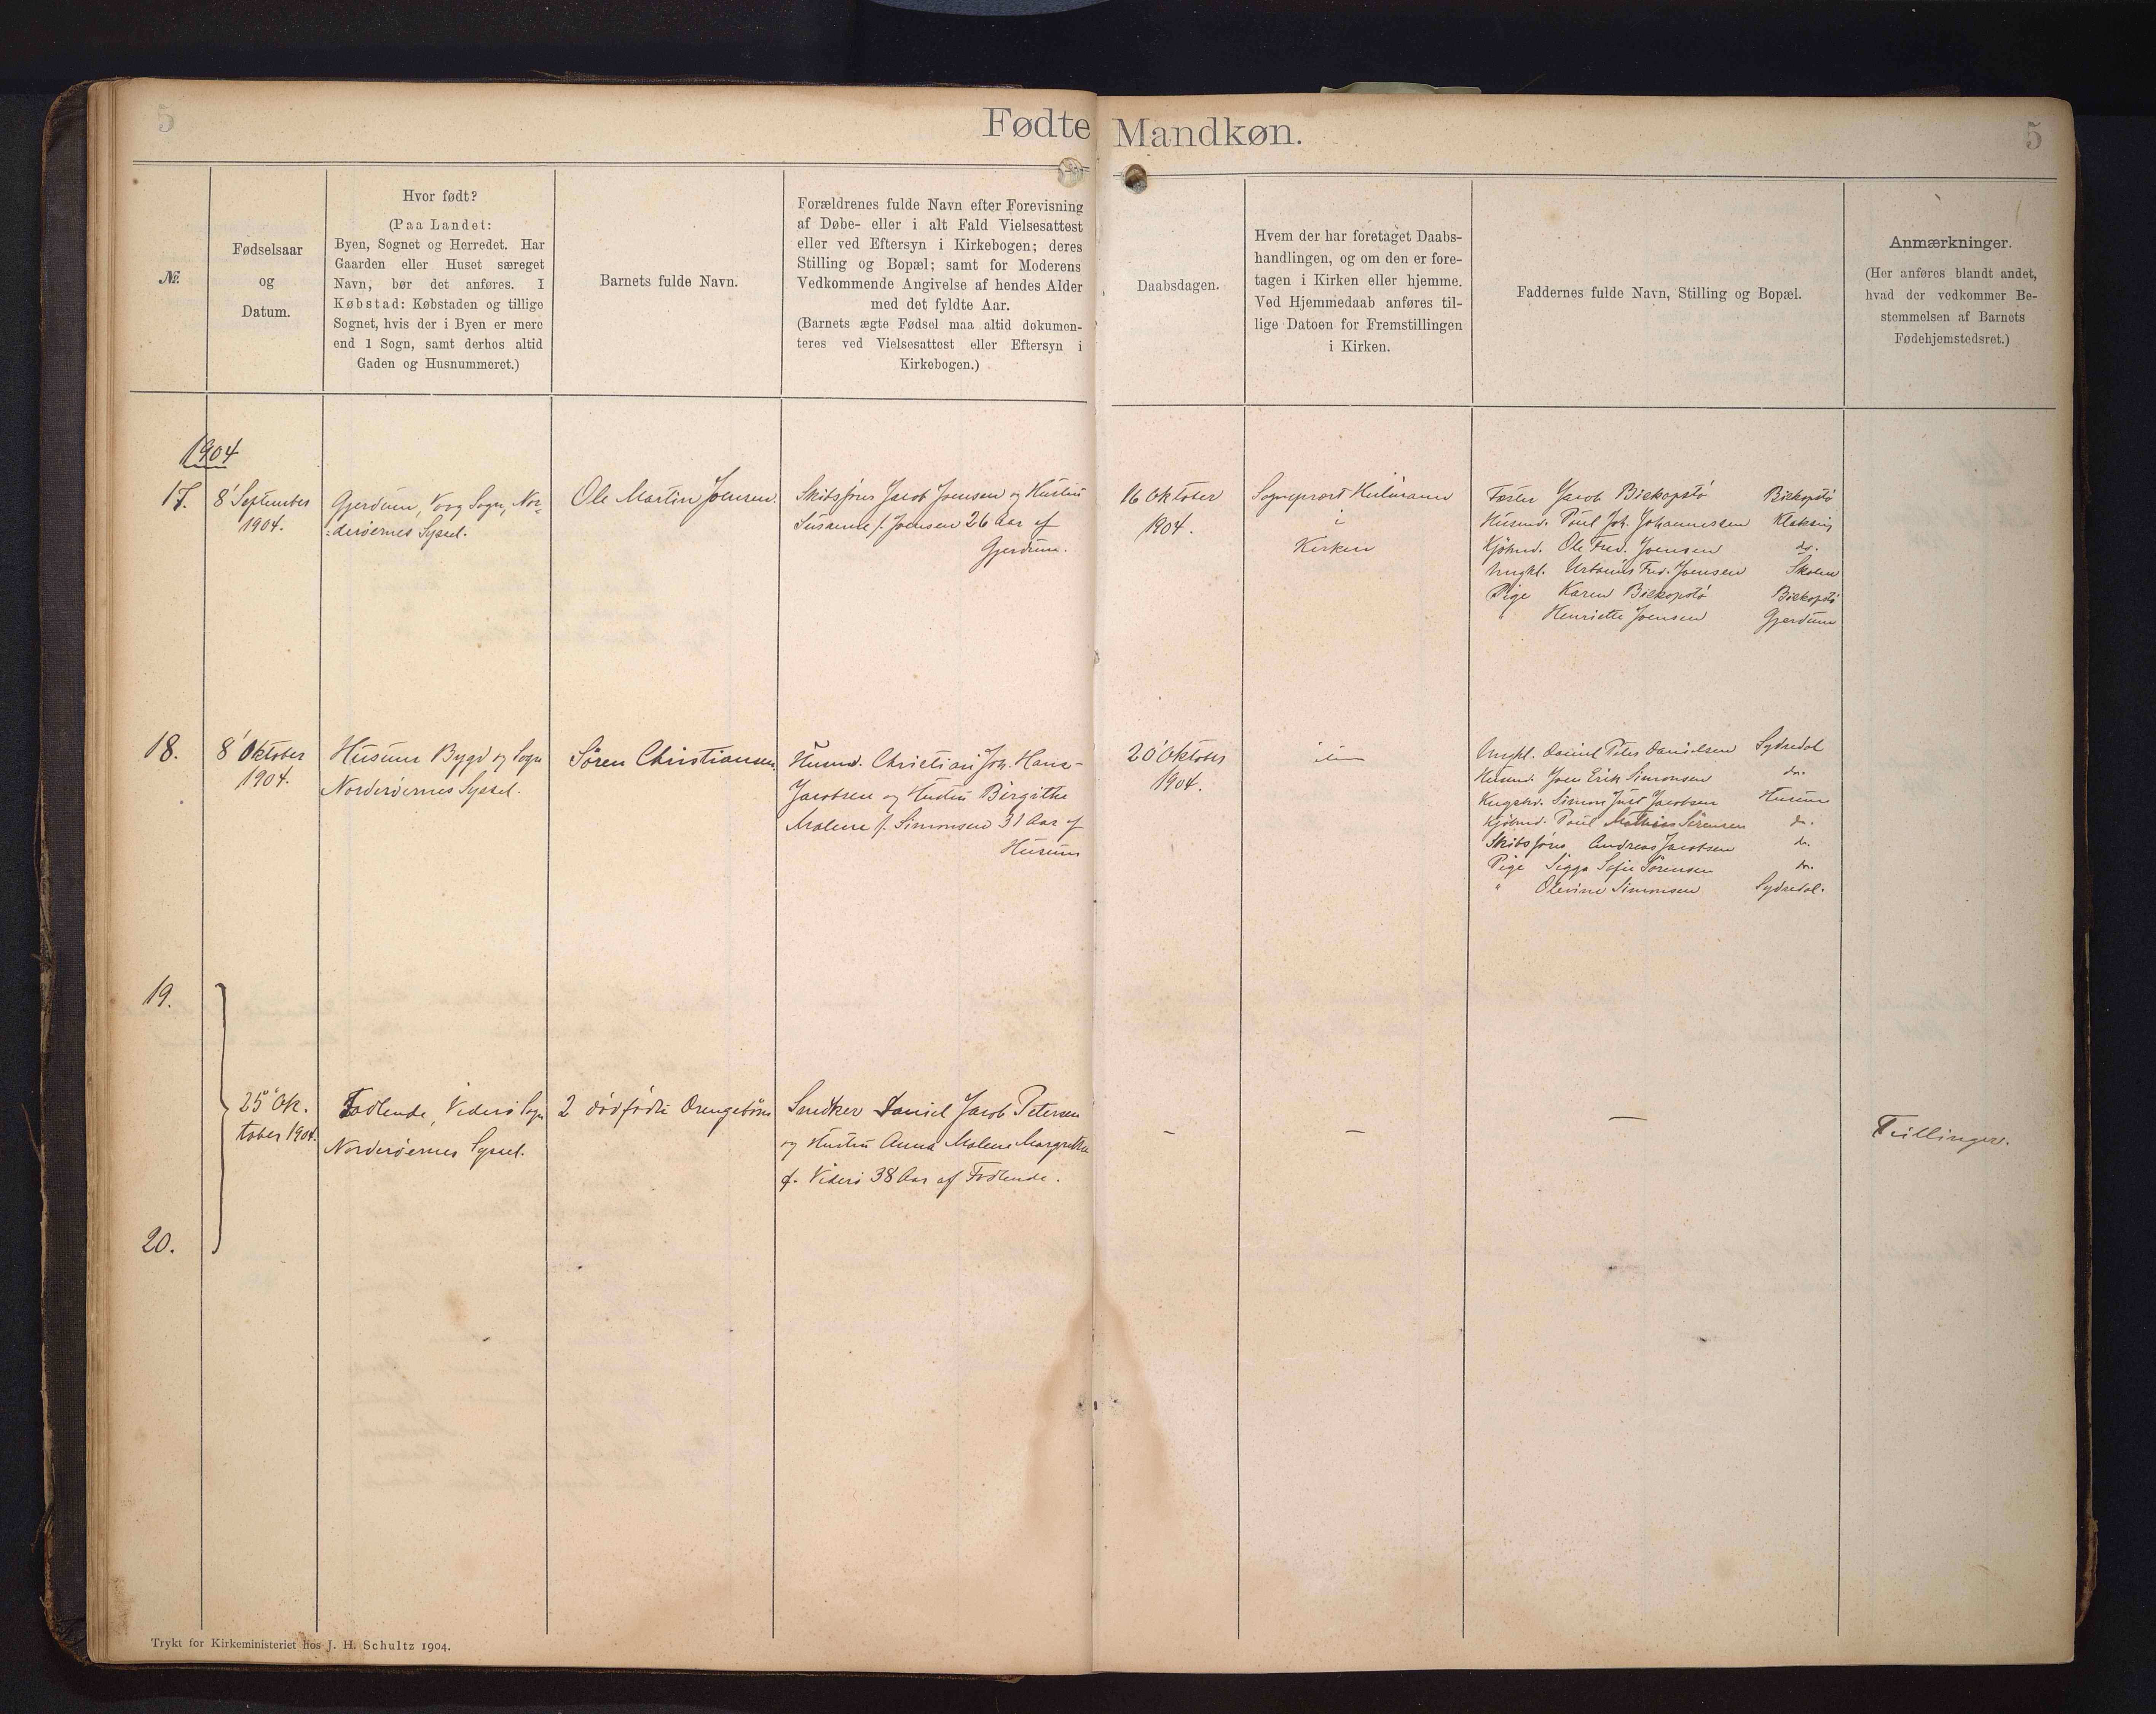 5
Fødte Mandkøn.
5
№
Fødselsaar
og
Datum.
Hvor født?
(Paa Landet:
Byen, Sognet og Herredet. Har
Gaarden eller Huset særeget
Navn, bør det anføres. I
Købstad: Købstaden og tillige
Sognet, hvis der i Byen er mere
end 1 Sogn, samt derhos altid
Gaden og Husnummeret.)
Barnets fulde Navn.
Forældrenes fulde Navn efter Forevisning
af Døbe- eller i alt Fald Vielsesattest
eller ved Eftersyn i Kirkebogen; deres
Stilling og Bopæl; samt for Moderens
Vedkommende Angivelse af hendes Alder
med det fyldte Aar.
(Barnets ægte Fødsel maa altid dokumen-
teres ved Vielsesattest eller Eftersyn i
Kirkebogen.)
Daabsdagen.
Hvem der har foretaget Daabs-
handlingen, og om den er fore-
tagen i Kirken eller hjemme.
Ved Hjemmedaab anføres til-
lige Datoen for Fremstillingen
i Kirken.
Faddernes fulde Navn, Stilling og Bopæl.
Anmærkninger.
(Her anføres blandt andet,
hvad der vedkommer Be-
stemmelsen af Barnets
Fødehjemstedsret.)
1904
17.
8 September
1904.
Gjerdum, Vaag Sogn, Nor-
derøernes Syssel.
Ole Martin Joensen.
Skibsfører Jacob Joensen og Hustru
Susanne f. Joensen 26 Aar af
Gjerdum.
16 Oktober
1904.
Sognepræst Heilmann
i
Kirken
Fæster Jacob Biskopstø Biskopstø
Husmd. Poul Joh. Johannessen Klaksvig
Kjøbmd. Ole Fred. Joensen do.
Ungkl. Urbanus Fred. Joensen Skaalen
Pige Karen Biskopstø Biskopstø
" Henriette Joensen Gjerdum
18.
8 Oktober
1904.
Husum Bygd og Sogn
Norderøernes Syssel.
Sören Christiansen.
Husmd. Christian Joh. Hans-
Jacobsen og Hustru Birgithe
Malene f. Simonsen 31 Aar af
Husum
20 Oktober
1904.
Ungkl. Daniel Peter Danielsen Sydredal
Husmd. Joen Erik Simonsen do.
Kongsbd. Simon Juul Jacobsen Husum
Kjøbmd. Poul Mathias Sörensen do.
Skibsfører Andreas Jacobsen do.
Pige Sigga Sofie Sörensen do.
" Olevine Simonsen Sydredal.
19.
25 Ok-
tober 1904.
Fodlende, Viderø Sogn
Norderøernes Syssel.
2 dødfødte Drengebørn
Snedker Daniel Jacob Petersen
og Hustru Anna Malene Margrethe
f. Viderø 38 Aar af Fodlende.
–
–
–
Tvillinger.
20.
Trykt for Kirkeministeriet hos J. H. Schultz 1904.